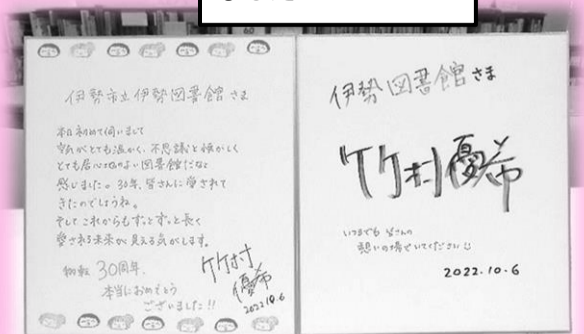 伊勢市立伊勢図書館さま
本日初めて伺いまして
空気がとても温かく、不思議と懐かしく
とても居心地のよい図書館だなと
感じました。30年、皆さんに愛されて
きたのでしょうね。
そしてこれからもずっとずっと長く
愛される未来が見える気がします。
移転30周年、
本当におめでとう
ございました!!
竹村
優希
2022.10.6
伊勢図書館さま
竹村優希
いつまでも皆さんの
憩いの場でいてください
2022.10.6